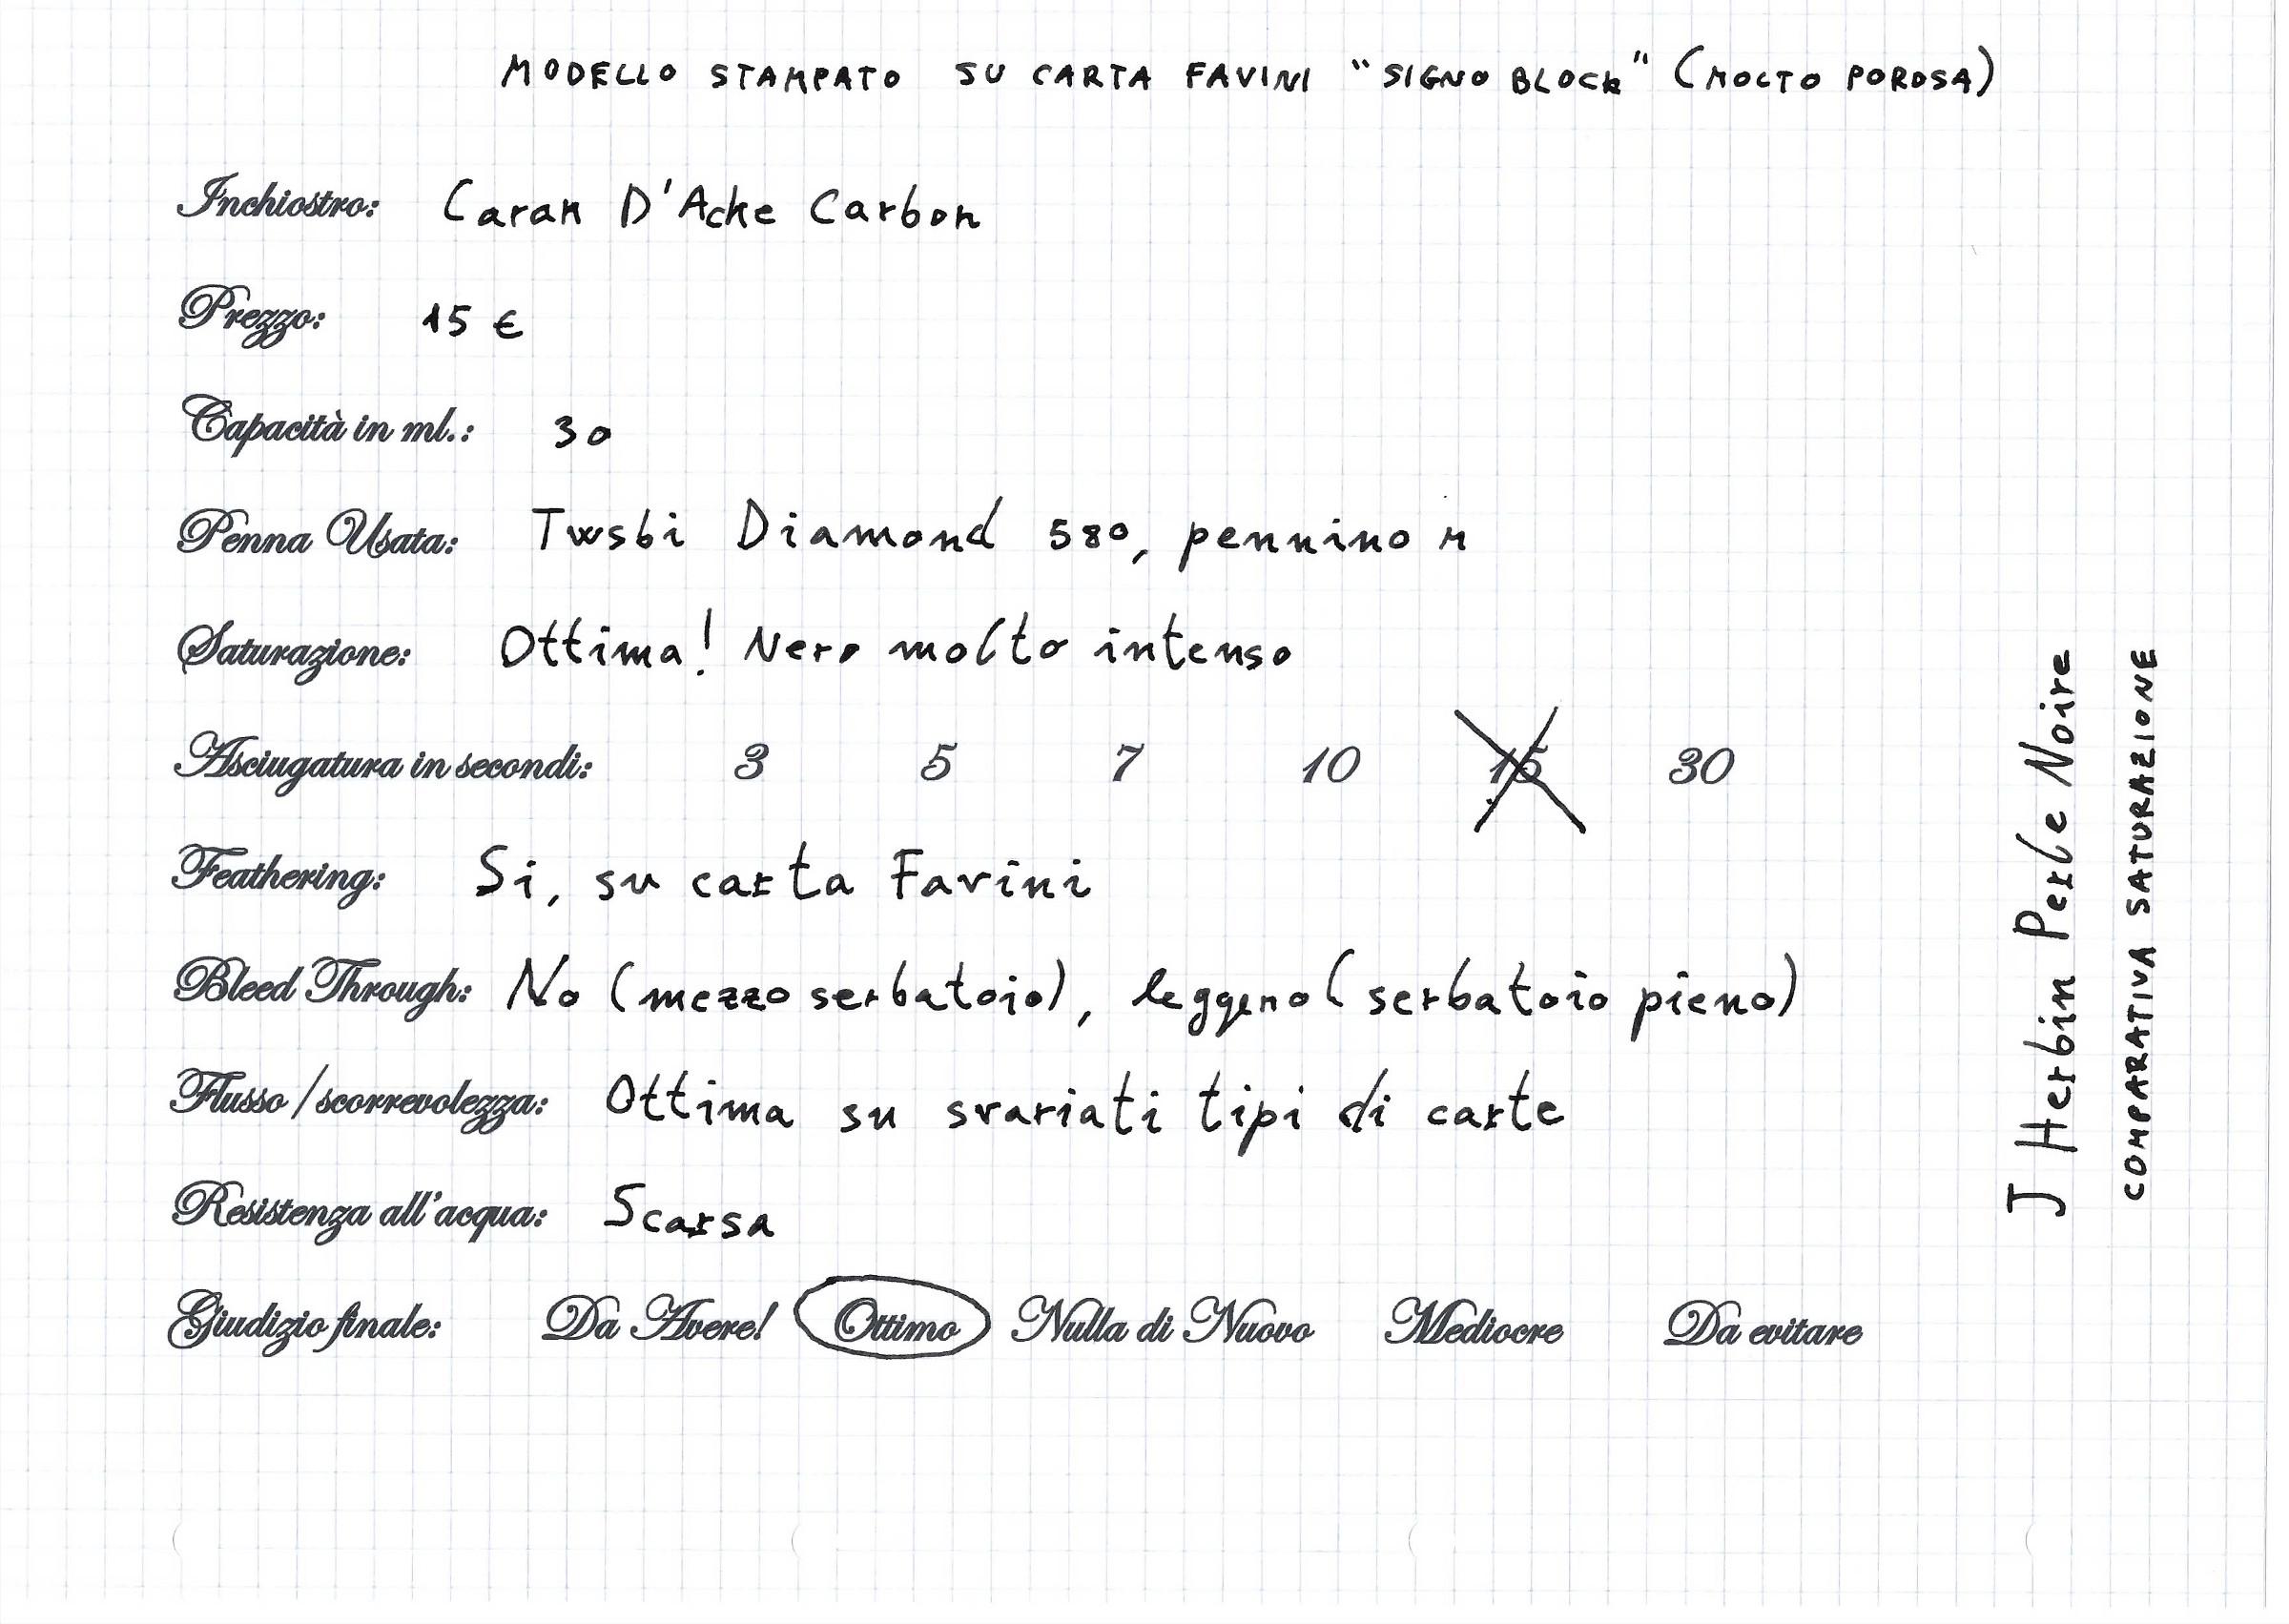 MODELLO STAMPATO SU CARTA FAVINI "SIGNO BLOCK" (MOLTO POROSA)
Inchiostro: Caran D'Ache Carbon
Prezzo: 15 €
Capacità in ml.: 30
Penna Usata: Twsbi Diamond 580, pennino M
Saturazione: Ottima! Nero molto intenso
Asciugatura in secondi: 3 5 7 10 15 30
Feathering: Si, su carta Favini
Bleed Through: No (mezzo serbatoio), leggero (serbatoio pieno)
Flusso / scorrevolezza: Ottima su svariati tipi di carte
Resistenza all'acqua: Scarsa
Giudizio finale: Da Avere! Ottimo Nulla di Nuovo Mediocre Da evitare
J Herbin Perle Noire
COMPARATIVA SATURAZIONE